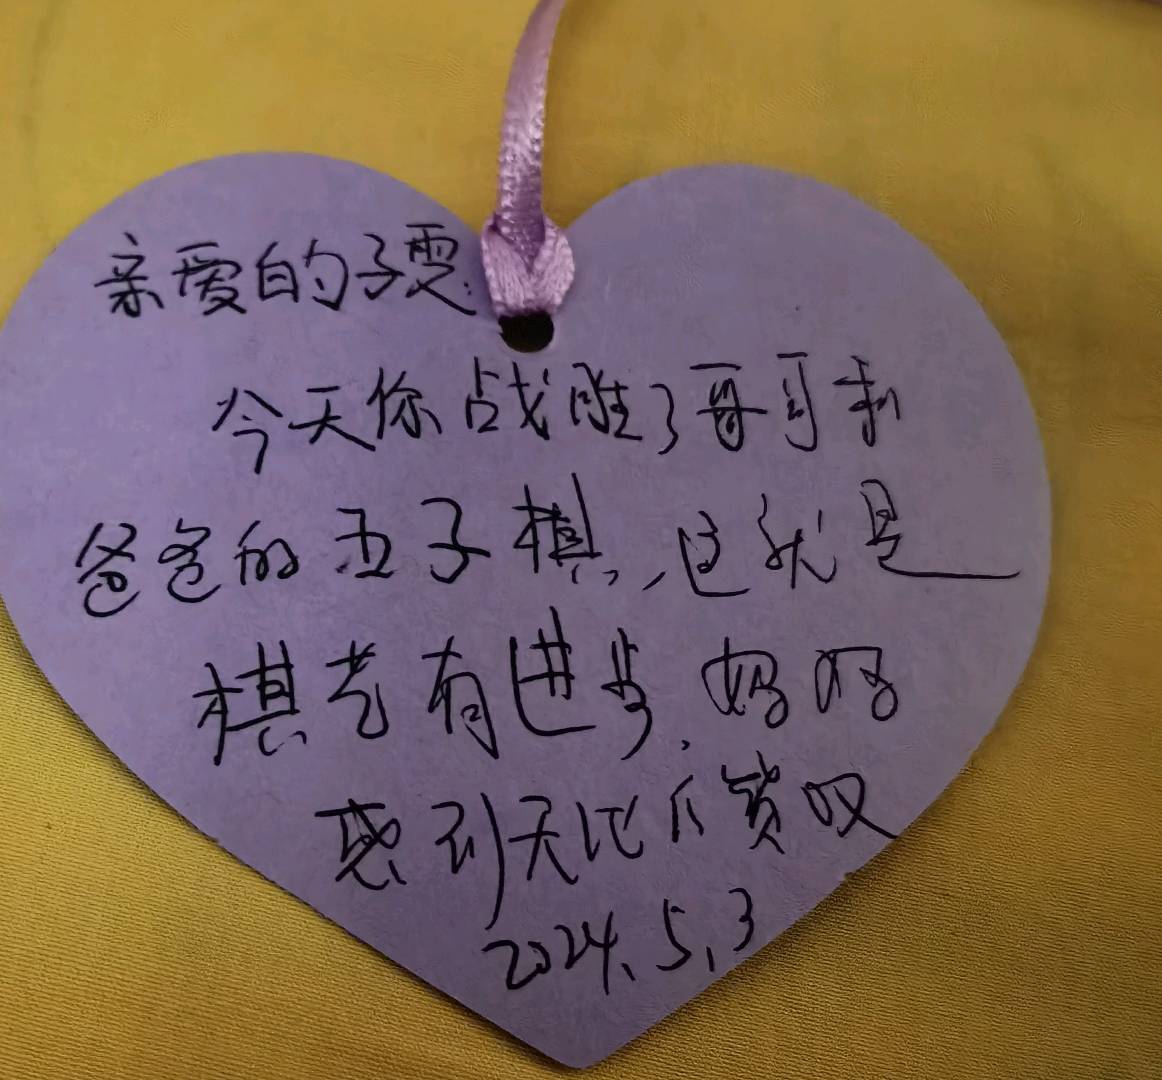 亲爱的子雯:
今天你战胜了哥哥和
爸爸的五子棋,这就是
棋艺有进步,妈妈
感到无比的赞叹
2024.5.3